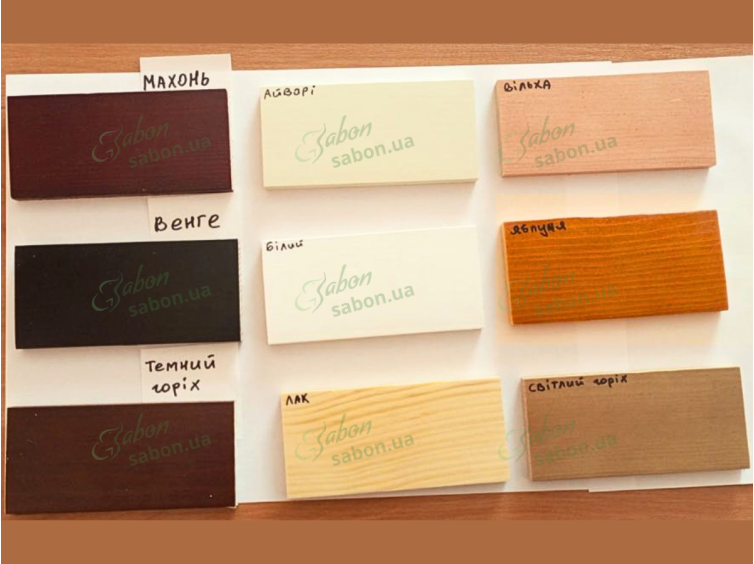 МАХОНЬ
АЙВОРІ
ВІЛЬХА
Sabon
sabon.ua
Sabon
sabon.ua
Sabon
sabon.ua
ВЕНГЕ
БІЛИЙ
ЯБЛУНЯ
Sabon
sabon.ua
Sabon
sabon.ua
Sabon
sabon.ua
Темний
горіх
ЛАК
СВІТЛИЙ горіх
Sabon
sabon.ua
Sabon
sabon.ua
Sabon
sabon.ua